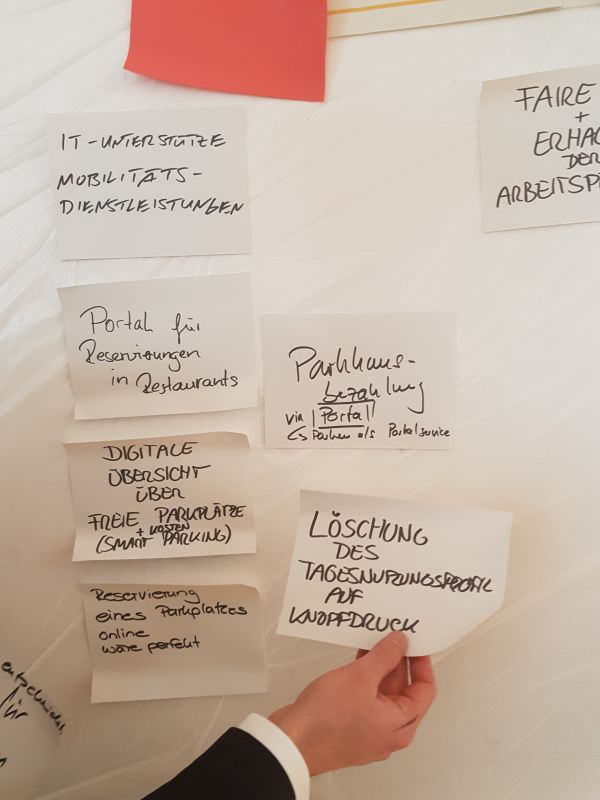 IT-UNTERSTÜTZE
MOBILITÄTS-
DIENSTLEISTUNGEN
FAIRE
+
ERHAL
DER
ARBEITSP
Portal für
Reservierungen
in Restaurants
Parkhaus-
bezahlung
via Portal
↳ Parken als Portalservice
DIGITALE
ÜBERSICHT
ÜBER
FREIE PARKPLÄTZE
+ KOSTEN
(SMART PARKING)
LÖSCHUNG
DES
TAGESNUTZUNGSPROFIL
AUF
KNOPFDRUCK
Reservierung
eines Parkplatzes
online
wäre perfekt
für